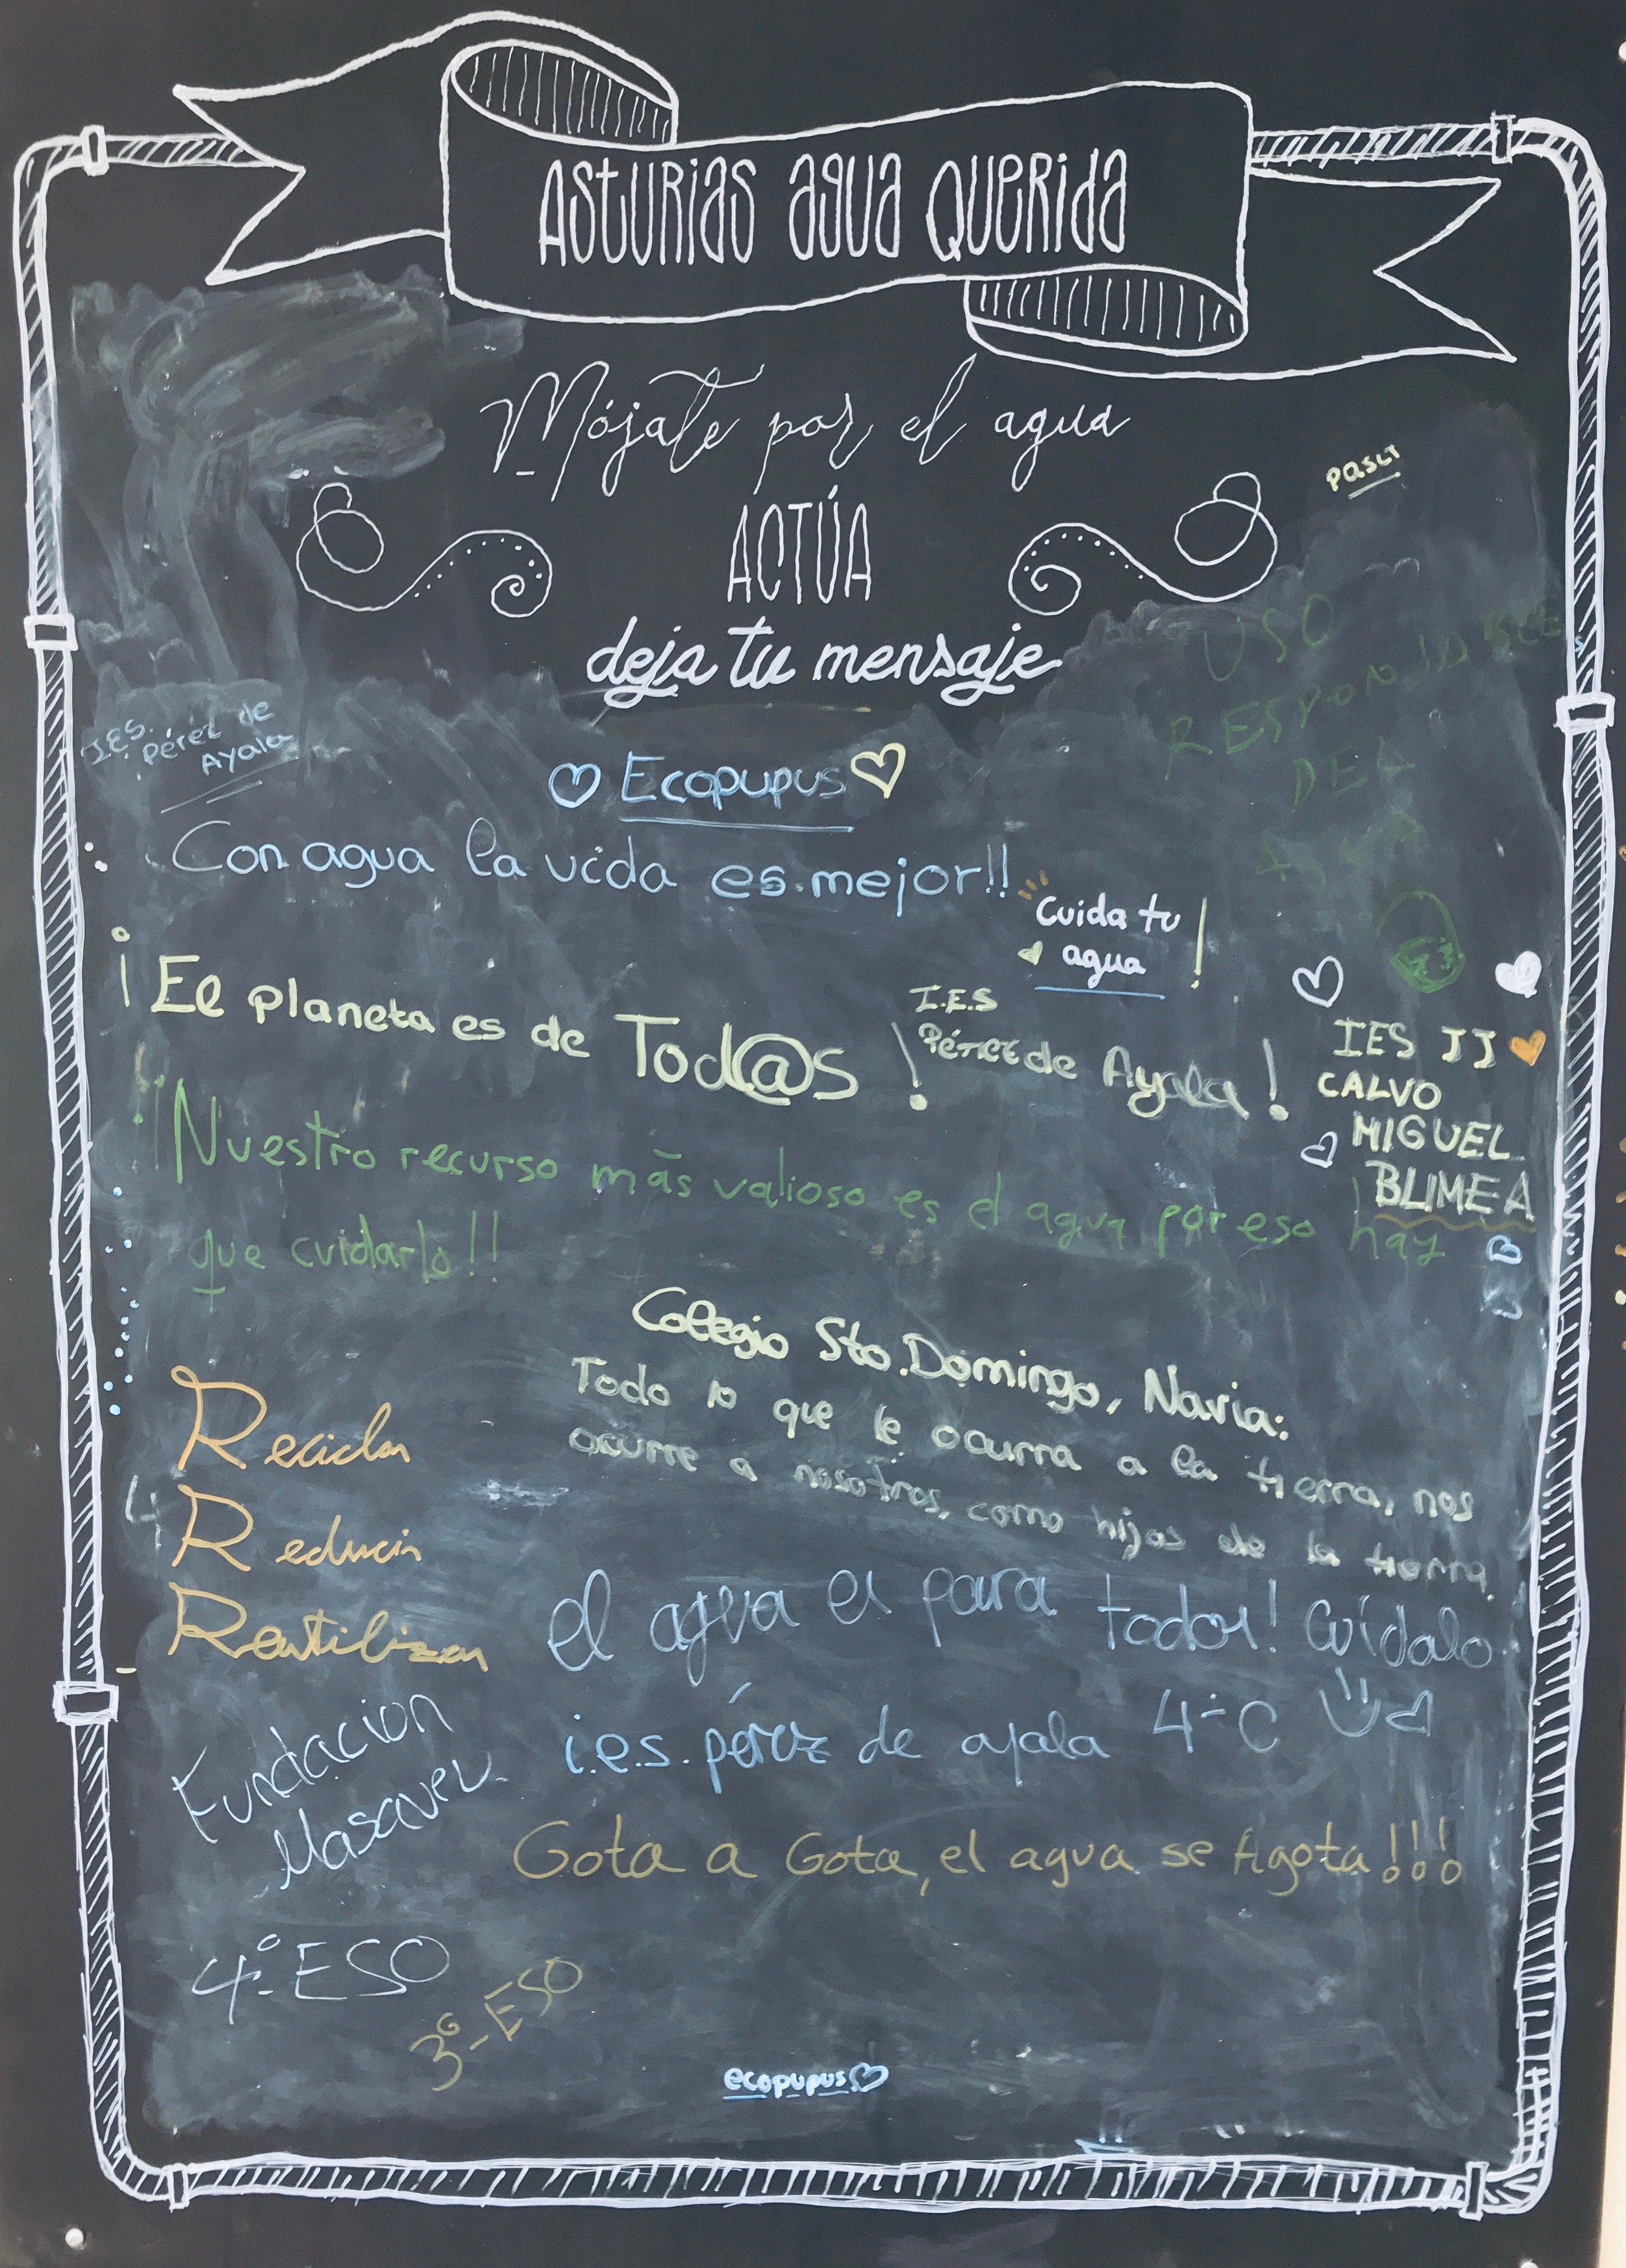 ASTURIAS AGUA QUERIDA
Mójate por el agua
ACTÚA
deja tu mensaje
USO
RESPONSABLE
DEL
AGUA
I.E.S. Pérez de
Ayala
Ecopupus
Con agua la vida es mejor!!
Cuida tu
agua !
¡El planeta es de Tod@s!
I.E.S
Pérez de Ayala!
IES JJ
CALVO
MIGUEL
BLIMEA
¡¡Nuestro recurso más valioso es el agua por eso hay
que cuidarlo!!
Colegio Sto.Domingo, Navia:
Todo lo que le ocurra a la tierra, nos
ocurre a nosotros, como hijos de la tierra.
Reciclar
Reducir
Reutilizar
el agua es para todos! Cuídalo
i.e.s. pérez de ayala 4-C
Fundacion
Masaveu
Gota a Gota, el agua se Agota!!!
4º ESO
3º-ESO
ecopupus